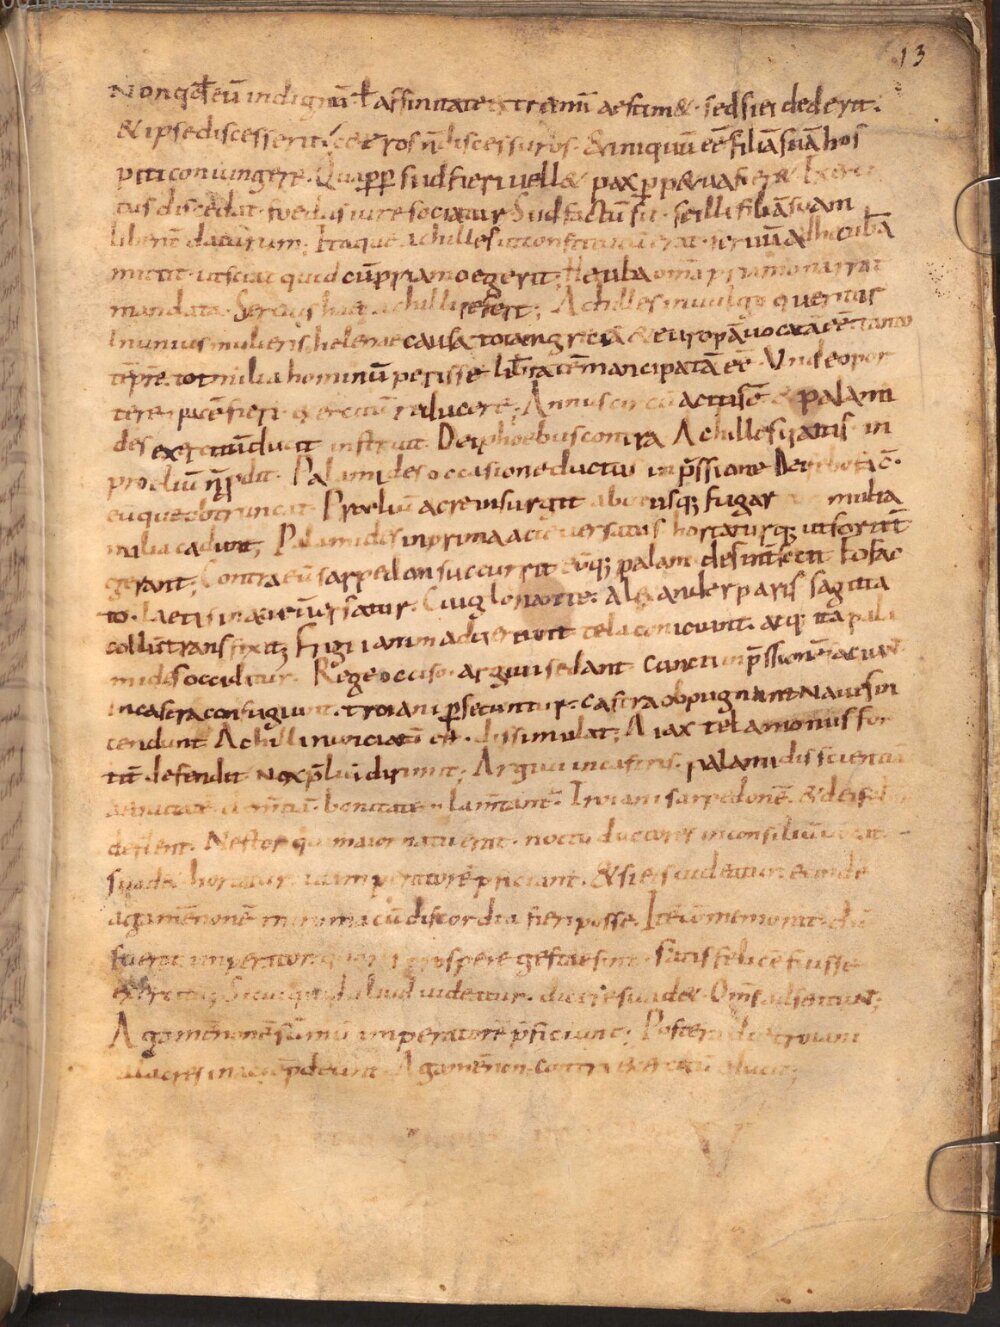 13
Non q̄ vel eū indignū vel affinitate extremū aestim&. sed si ei dederit.
& ipse discesserit. ceteros n̄ discessuros. & iniquū eē filiā suā hos
piti coniungere. Quapp̄ si id fieri vell& pax ꝑp&ua fier& Exerci
tus discedat foedus iure sociatur Si id factū sit se illi filiā suam
libent̄ daturum; Itaque achilles ut constitutū erat servū ad hecubā
mittit. ut sciat quid cū priamo egerit; Hecuba om̄a priamo narrat
mandata. Servus haec achilli refert; Achilles in vulgo queritur
Unius mulieris helenae causa totam greciā & europā vocatā eē. tanto
tēpre. tot milia hominū perisse. lib̄tatē mancipatā eē. Unde opor
tere pacē fieri exercitū reducere; Annus circū actus ē & palami
des exercitū ducit instruit Deiphoebus contra Achilles iratus in
proeliū n̄ p̄dit. Palamides occasione ductus inp̄ssionē Deiphoebi
eūque obtruncat. Proeliū acre insurgit ab utrisq; fugar multa
milia cadunt; Palamides in prima acie versatus hortaturq; ut fortit̄
gerant; Contra eū sarpedon succurrit eūq; palamides int̄fecit Eo fac
to. laetus in acie versatur. Cui glorianti. alexander paris sagitta
collū transfixit; Frigii animadverterunt tela coniciunt. atq; ita pala
mides occiditur. Rege occiso. argivi sedant Cuncti inp̄ssionē
in castra confugiunt. troiani ꝑsecuntur. castra obpugnant Naves in
cendunt Achilli nunciatū est. dissimulat; Aiax telamonius for
tit̄ defendit Nox p̄liū dirimit; Argivi in castris. palamidis scientiā
aequitatē clem̄tiā. bonitatē lam̄tant̄. Troiani sarpedonē. & deifebū
deflent. Nestor qui maior natu erat. noctu ductores in consiliū vocat
suad& hortatur. ut imperatorē p̄ficiant. & si eis videatur eundē
agam̄nonē minima cū discordia fieri posse. Itē cōmemorat. dū
fuerit imperator prospere gesta esse sint. satis felicē fuisse
exercitū; Si cui quid aliud videatur. dicere suad&. Om̄s adsentiunt;
Agam̄nonē sūmū imperatorē p̄ficiunt; Postera die troiani
alacres in aciē p̄deunt Agam̄non contra exercitū educit;